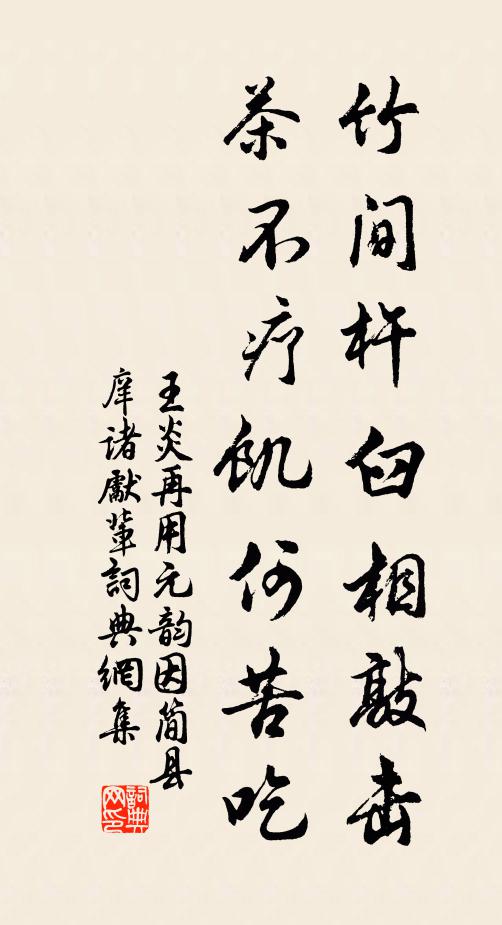 竹间杵臼相敲击
茶不疗饥何苦吃
王炎再用元韵因简县
庠诸献辈詞典網集
詞典网印